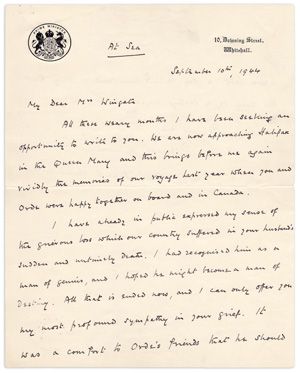 At Sea
10, Downing Street,
Whitehall.
September 10th, 1944
My Dear Mrs Wingate
All these weary months I have been seeking an
opportunity to write to you. We are now approaching Halifax
in the Queen Mary and this brings before me again
vividly the memories of our voyage last year when you and
Orde were happy together on board and in Canada.
I have already in public expressed my sense of
the grievous loss which our country suffered in your husband's
sudden and untimely death. I had recognised him as a
man of genius, and I hoped he might become a man of
Destiny. All that is ended now, and I can only offer you
my most profound sympathy in your grief. It
was a comfort to Orde's friends that he should